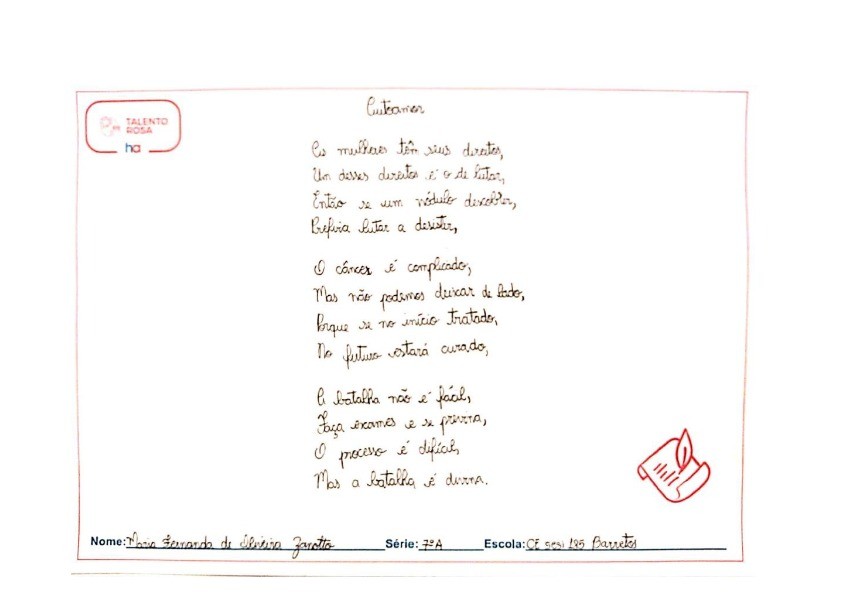 TALENTO
ROSA
ha
Autoamor
As mulheres têm seus direitos,
Um desses direitos é o de lutar,
Então se um nódulo descobrir,
Prefira lutar a desistir,
O câncer é complicado,
Mas não podemos deixar de lado,
Porque se no início tratado,
No futuro estará curado,
A batalha não é fácil,
Faça exames e se previna,
O processo é difícil,
Mas a batalha é divina.
Nome: Maria Fernanda de Oliveira Zanotto Série: 7º A Escola: CE sesi 195 Barretos